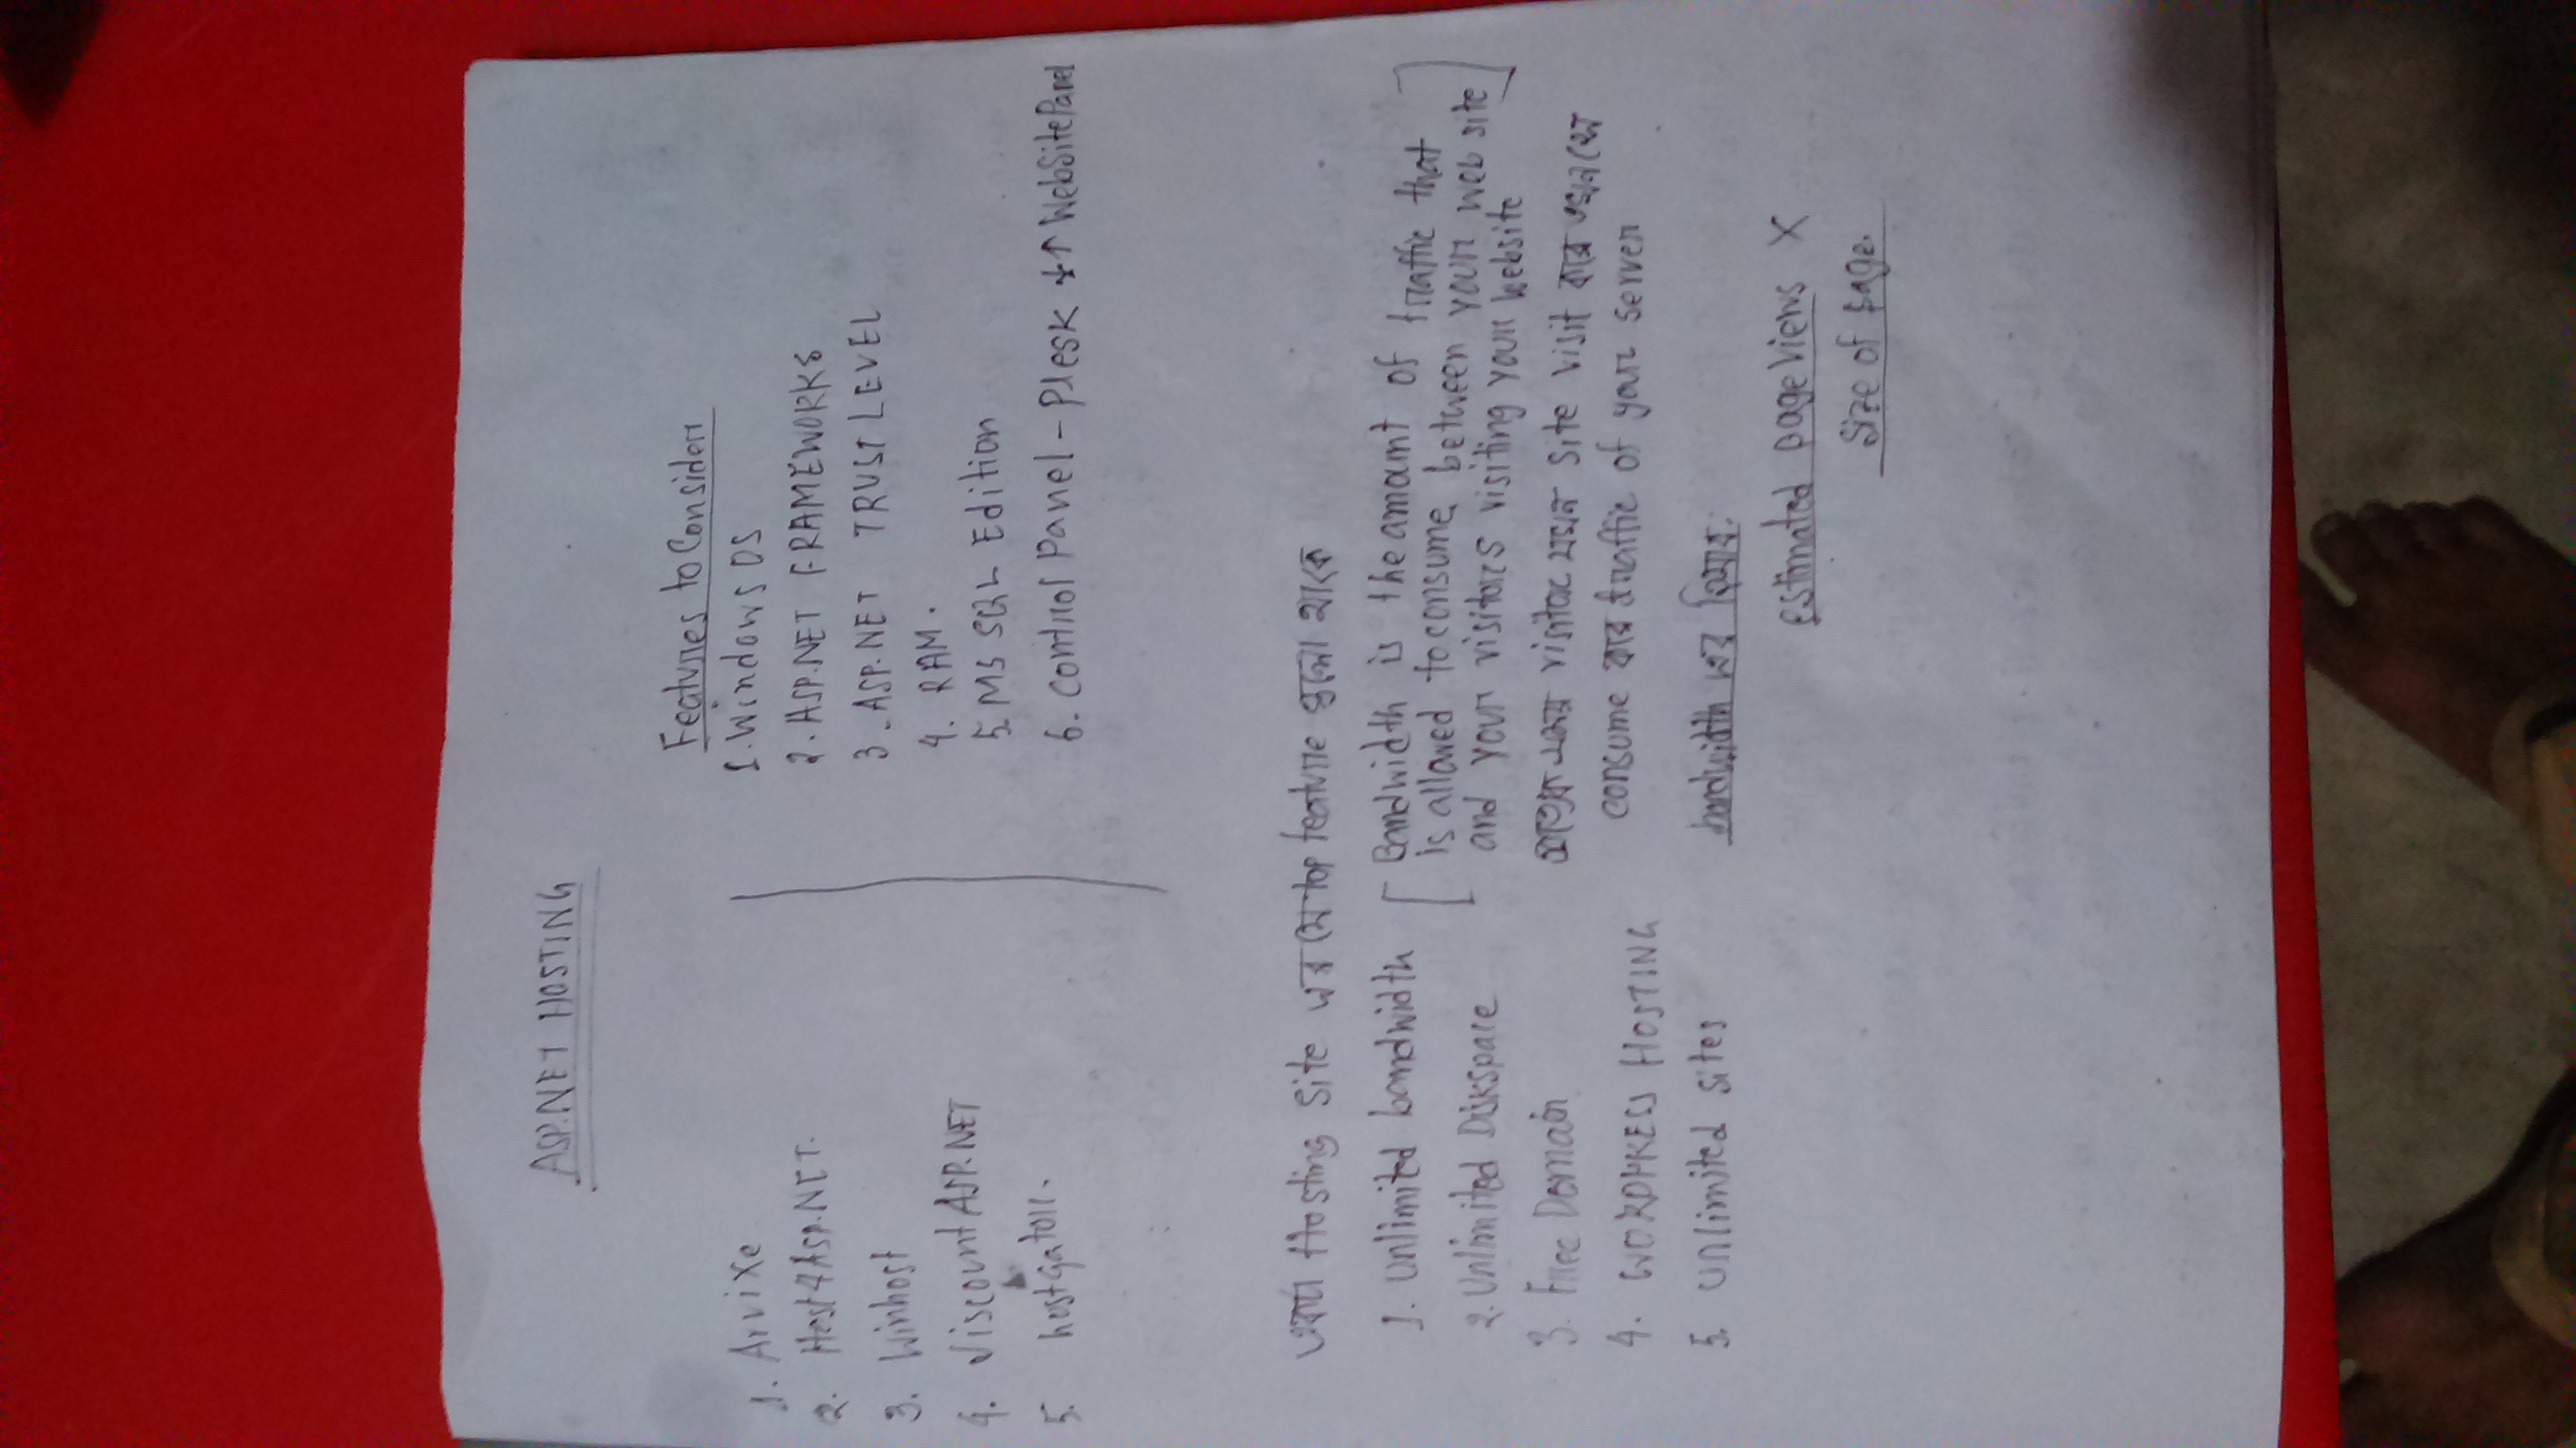 ASP.NET HOSTING
1. Arvixe
2. Host4Asp.NET.
3. Winhost
4. Discount ASP.NET
5. hostgator.
Features to Consider
1. Windows OS
2. ASP.NET FRAMEWORKS
3. ASP.NET TRUST LEVEL
4. RAM.
5. MS SQL Edition
6. Control Panel - Plesk WebSitePanel
একটা Hosting site এর যে top feature গুলো থাকে
1. Unlimited bandwidth
2. Unlimited Diskspace
3. Free Domain
4. WORDPRESS HOSTING
5. Unlimited sites
[Bandwidth is the amount of traffic that
is allowed to consume between your web site
and your visitors visiting your website]
প্রত্যেক একজন visitor যখন site visit করে তখন সে
consume করে traffic of your server
bandwidth এর হিসাব:
estimated page views X
Size of page.